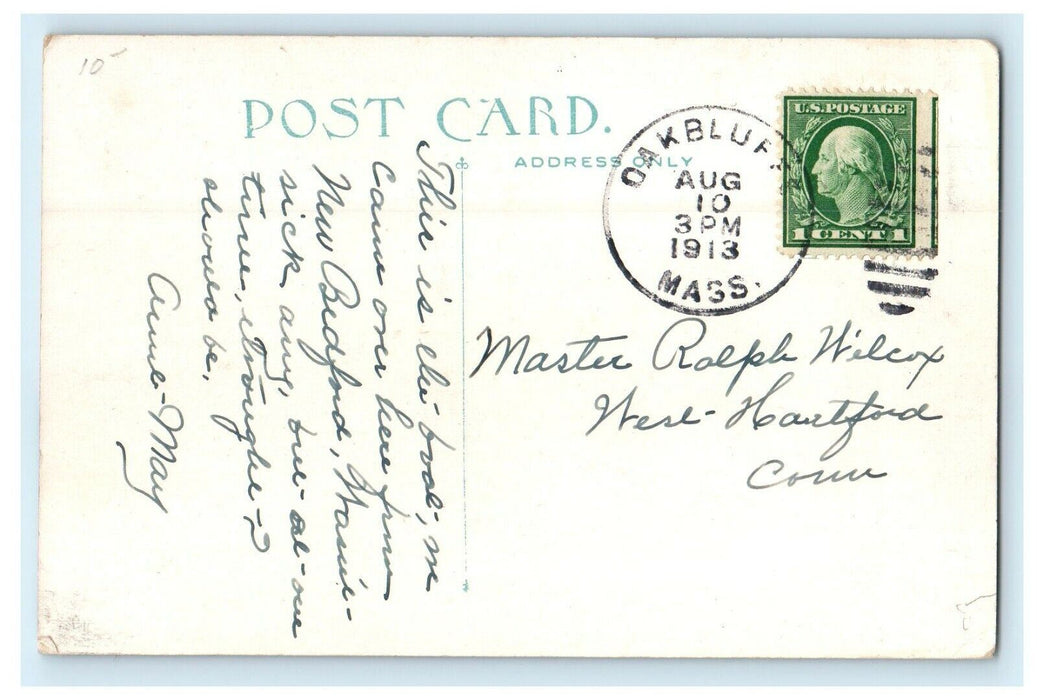 10
POST CARD.
ADDRESS ONLY
U.S. POSTAGE
1 CENT 1
OAK BLUFFS
AUG
10
3 PM
1913
MASS.
This is the boat, we
came over here from
New Bedford, Wasn't
sick any, but at one
time, I thought I
should be.
Aunt May
Master Ralph Wilcox
West Hartford
Conn